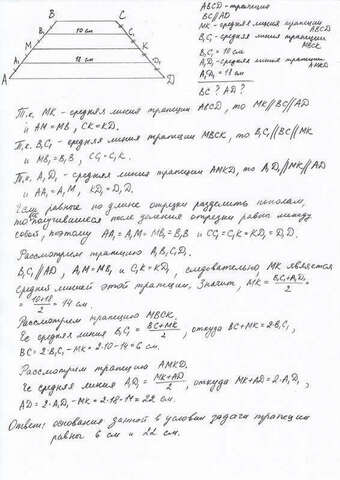 B C
B₁ 10 см C₁
M K
A₁ 18 см D₁
A D
ABCD - трапеция
BC//AD
MK - средняя линия трапеции ABCD
B₁C₁ - средняя линия трапеции MBCK
B₁C₁ = 10 см
A₁D₁ - средняя линия трапеции AMKD
A₁D₁ = 18 см
BC ? AD ?
Т.к. MK - средняя линия трапеции ABCD, то MK//BC//AD
и AM = MB, CK = KD.
Т.к. B₁C₁ - средняя линия трапеции MBCK, то B₁C₁//BC//MK
и MB₁ = B₁B, CC₁ = C₁K.
Т.к. A₁D₁ - средняя линия трапеции AMKD, то A₁D₁//MK//AD
и AA₁ = A₁M, KD₁ = D₁D.
Если равные по длине отрезки разделить пополам,
то получившиеся после деления отрезки равны между
собой, поэтому AA₁ = A₁M = MB₁ = B₁B и CC₁ = C₁K = KD₁ = D₁D.
Рассмотрим трапецию A₁B₁C₁D₁.
B₁C₁//AD, A₁M = MB₁ и C₁K = KD₁, следовательно, MK является
средней линией этой трапеции. Значит, MK = (B₁C₁+A₁D₁)/2 =
= (10+18)/2 = 14 см.
Рассмотрим трапецию MBCK.
Её средняя линия B₁C₁ = (BC+MK)/2, откуда BC+MK = 2·B₁C₁,
BC = 2·B₁C₁ - MK = 2·10 - 14 = 6 см.
Рассмотрим трапецию AMKD.
Её средняя линия A₁D₁ = (MK+AD)/2, откуда MK+AD = 2·A₁D₁,
AD = 2·A₁D₁ - MK = 2·18 - 14 = 22 см.
Ответ: основания данной в условии задачи трапеции
равны 6 см и 22 см.